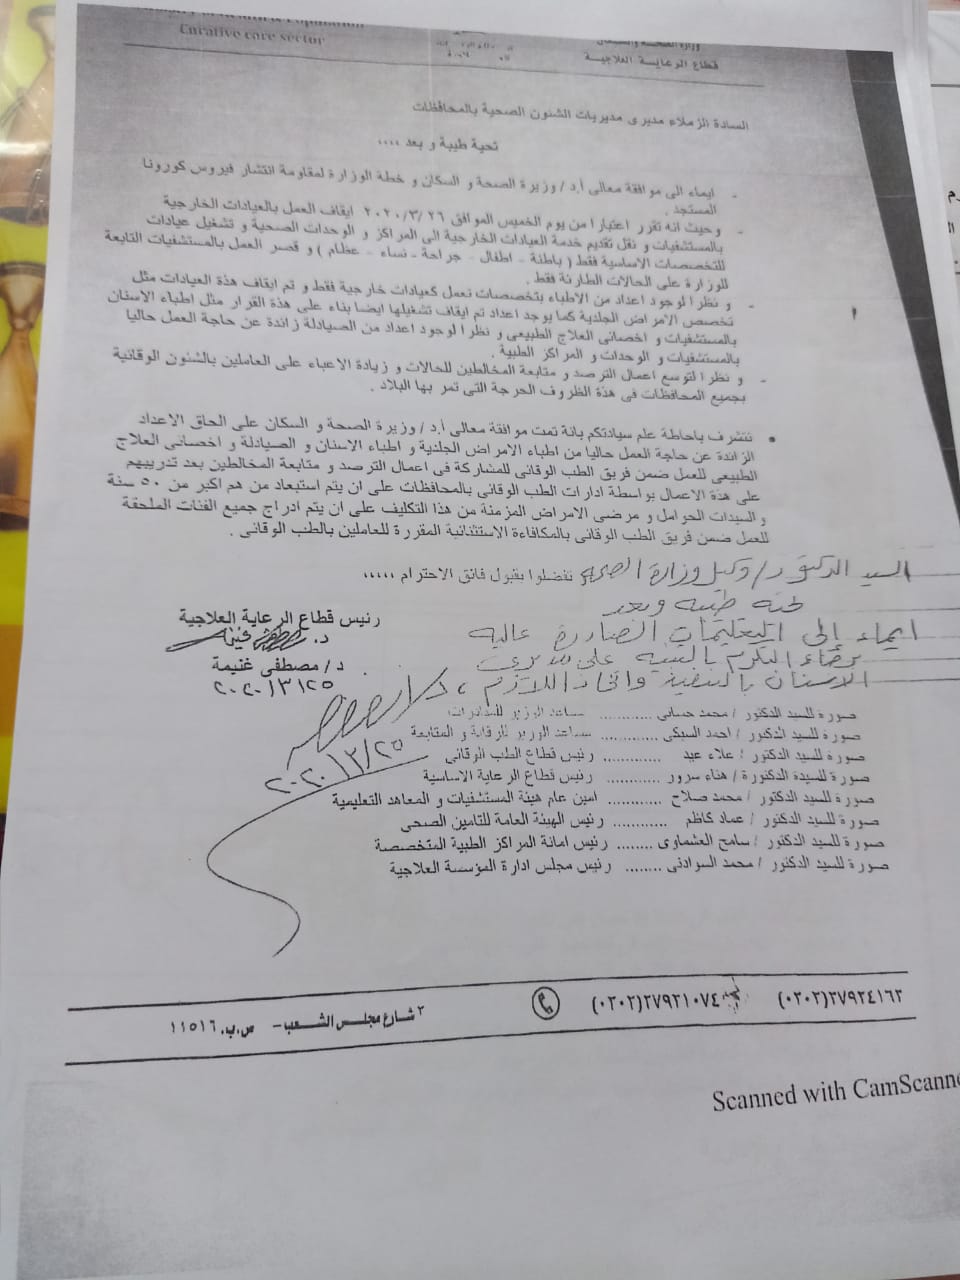 Curative care sector
قطاع الرعاية العلاجية
السادة الزملاء مديرى مديريات الشئون الصحية بالمحافظات
تحية طيبة و بعد ،،،،
- ايماء الى موافقة معالى أ.د / وزيرة الصحة و السكان و خطة الوزارة لمقاومة انتشار فيروس كورونا
المستجد .
- وحيث انه تقرر اعتبارا من يوم الخميس الموافق ٢٠٢٠/٣/٢٦ ايقاف العمل بالعيادات الخارجية
بالمستشفيات و نقل تقديم خدمة العيادات الخارجية الى المراكز و الوحدات الصحية و تشغيل عيادات
للتخصصات الاساسية فقط ( باطنة - اطفال - جراحة - نساء - عظام ) و قصر العمل بالمستشفيات التابعة
للوزارة على الحالات الطارئة فقط .
- و نظرا لوجود اعداد من الأطباء بتخصصات تعمل كعيادات خارجية فقط و تم ايقاف هذة العيادات مثل
تخصص الامراض الجلدية كما يوجد اعداد تم ايقاف تشغيلها ايضا بناء على هذة القرار مثل اطباء الاسنان
بالمستشفيات و اخصائى العلاج الطبيعى و نظرا لوجود اعداد من الصيادلة زائدة عن حاجة العمل حاليا
بالمستشفيات و الوحدات و المراكز الطبية .
- و نظرا لتوسع اعمال الترصد و متابعة المخالطين للحالات و زيادة الاعباء على العاملين بالشئون الوقائية
بجميع المحافظات فى هذة الظروف الحرجة التى تمر بها البلاد .
• نتشرف باحاطة علم سيادتكم بانة تمت موافقة معالى أ.د / وزيرة الصحة و السكان على الحاق الاعداد
الزائدة عن حاجة العمل حاليا من اطباء الامراض الجلدية و اطباء الاسنان و الصيادلة و اخصائى العلاج
الطبيعى للعمل ضمن فريق الطب الوقائى للمشاركة فى اعمال الترصد و متابعة المخالطين بعد تدريبهم
على هذة الاعمال بواسطة ادارات الطب الوقائى بالمحافظات على ان يتم استبعاد من هم اكبر من ٥٠ سنة
و السيدات الحوامل و مرضى الامراض المزمنة من هذا التكليف على ان يتم ادراج جميع الفئات الملحقة
للعمل ضمن فريق الطب الوقائى بالمكافاءة الاستثنائية المقررة للعاملين بالطب الوقائى .
السيد الدكتور / وكيل وزارة الصحة تفضلوا بقبول فائق الاحترام ،،،،،
تحية طيبة وبعد
رئيس قطاع الرعاية العلاجية
ايماء إلى التعليمات الصادرة عاليه
برجاء التكرم بالتنبيه على مديرى
د / مصطفى غنيمة
الاسنان بالتنفيذ واتخاذ اللازم ،
٢٠٢٠/٣/٢٥
صورة للسيد الدكتور / محمد حسانى ............ مساعد الوزير للمبادرات
صورة للسيد الدكتور / احمد السبكى ............ مساعد الوزير للرقابة و المتابعة
صورة للسيد الدكتور / علاء عيد ............ رئيس قطاع الطب الوقائى
صورة للسيدة الدكتورة / هناء سرور ............ رئيس قطاع الرعاية الاساسية
صورة للسيد الدكتور / محمد صلاح ............ امين عام هيئة المستشفيات و المعاهد التعليمية
صورة للسيد الدكتور / عماد كاظم ............ رئيس الهيئة العامة للتامين الصحى
صورة للسيد الدكتور / سامح العشماوى ........ رئيس امانة المراكز الطبية المتخصصة
صورة للسيد الدكتور / محمد السوادنى ........ رئيس مجلس ادارة المؤسسة العلاجية
٢٠٢٠/٣/٢٥
(٠٢٠٢)٢٧٩٢٤١٦٣ (٠٢٠٢)٢٧٩٢١٠٧٤
٣ شارع مجلس الشعب – ص.ب. ١١٥١٦
Scanned with CamScanne